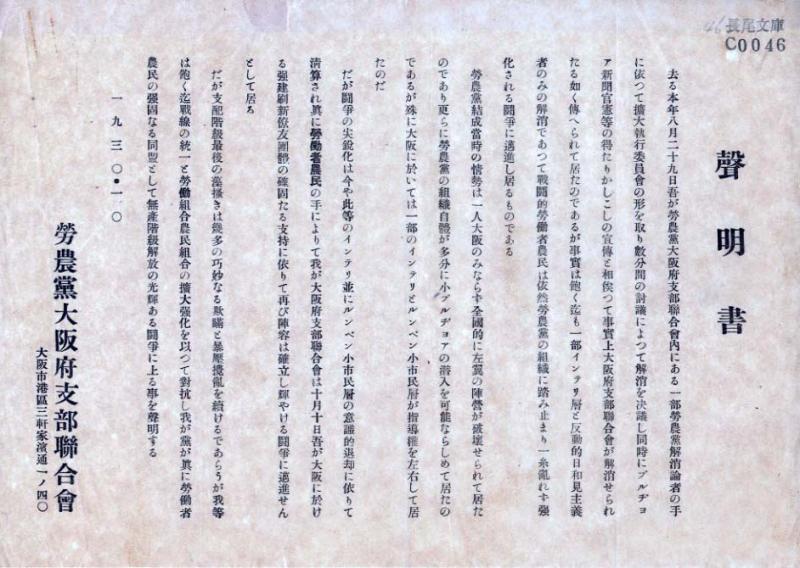 46 長尾文庫
C0046
聲明書
去る本年八月二十九日吾が勞農黨大阪府支部聯合會内にある一部勞農黨解消論者の手
に依つて擴大執行委員會の形を取り數分間の討議によつて解消を決議し同時にブルヂョ
ア新聞官憲等の得たりかしこしの宣傳と相俟つて事實上大阪府支部聯合會が解消せられ
たる如く傳へられて居たのであるが事實は飽く迄も一部インテリ層と反動的日和見主義
者のみの解消であつて戰鬪的勞働者農民は依然勞農黨の組織に踏み止まり一糸亂れず强
化される鬪爭に邁進し居るものである
勞農黨結成當時の情勢は一人大阪のみならず全國的に左翼の陣營が破壞せられて居た
のであり更らに勞農黨の組織自體が多分に小ブルヂョアの潜入を可能ならしめて居たの
であるが殊に大阪に於いては一部のインテリとルンペン小市民層が指導權を左右して居
たのだ
だが鬪爭の尖銳化は今や此等のインテリ並にルンペン小市民層の意識的退却に依りて
清算され眞に勞働者農民の手によりて我が大阪府支部聯合會は十月十日吾が大阪に於け
る强建刷新僚友團體の確固たる支持に依りて再び陣容は確立し輝やける鬪爭に邁進せん
として居る
だが支配階級最後の藻搔きは幾多の巧妙なる欺瞞と暴壓攪亂を續けるであらうが我等
は飽く迄戰線の統一と勞働組合農民組合の擴大强化を以つて對抗し我が黨が眞に勞働者
農民の强固なる同盟として無產階級解放の光輝ある鬪爭に上る事を聲明する
一九三〇・一〇
勞農黨大阪府支部聯合會
大阪市港區三軒家濱通一ノ四〇